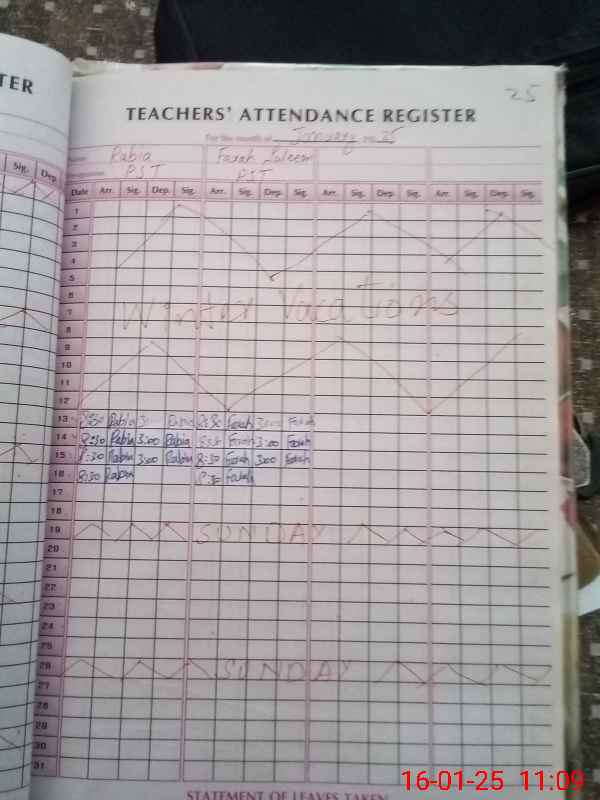 TER
25
TEACHERS' ATTENDANCE REGISTER
For the month of January 20 25
Name Rabia Farah Saleem
Designation PST PST
Sig. Dep.
Date Arr. Sig. Dep. Sig. Arr. Sig. Dep. Sig. Arr. Sig. Dep. Sig. Arr. Sig. Dep. Sig.
1
2
3
4
5
6
Winter Vacations
7
8
9
10
11
12
13 8:30 Rabia 3:00 Rabia 8:30 Farah 3:00 Farah
14 8:30 Rabia 3:00 Rabia 8:30 Farah 3:00 Farah
15 8:30 Rabia 3:00 Rabia 8:30 Farah 3:00 Farah
16 8:30 Rabia 8:30 Farah
17
18
19 SUNDAY
20
21
22
23
24
25
26 SUNDAY
27
28
29
30
31
STATEMENT OF LEAVES TAKEN
16-01-25 11:09